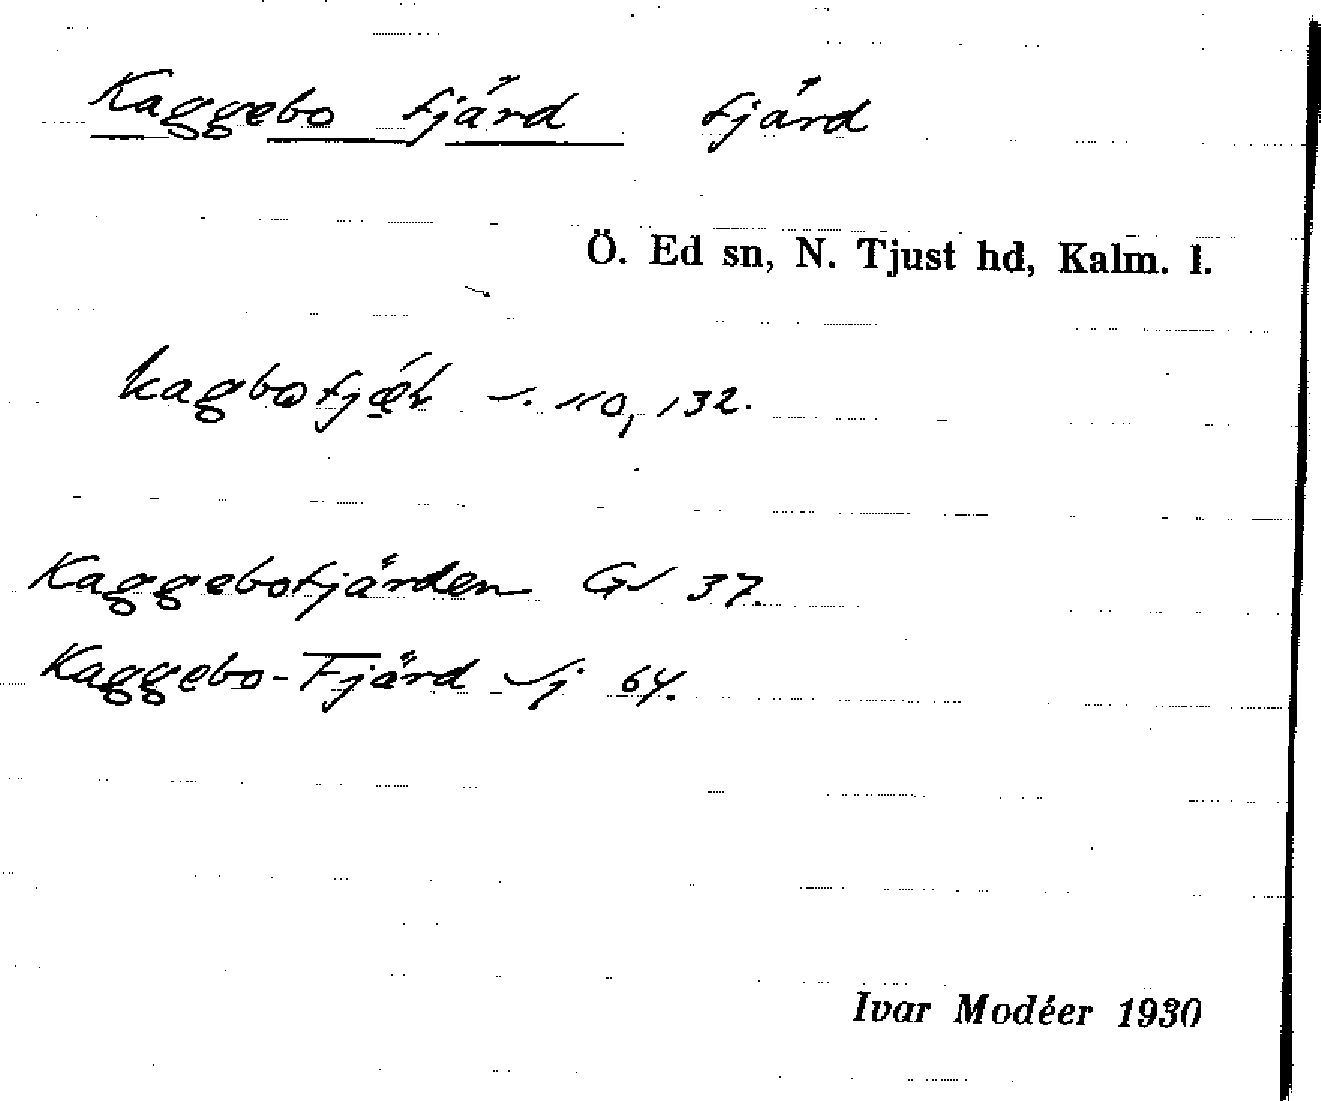 Kaggebo fjärd fjärd
Ö. Ed sn, N. Tjust hd, Kalm. l.
s. 110, 132.
Kaggebofjärden GS 37.
Kaggebo-Fjärd Sj 64.
Ivar Modéer 1930